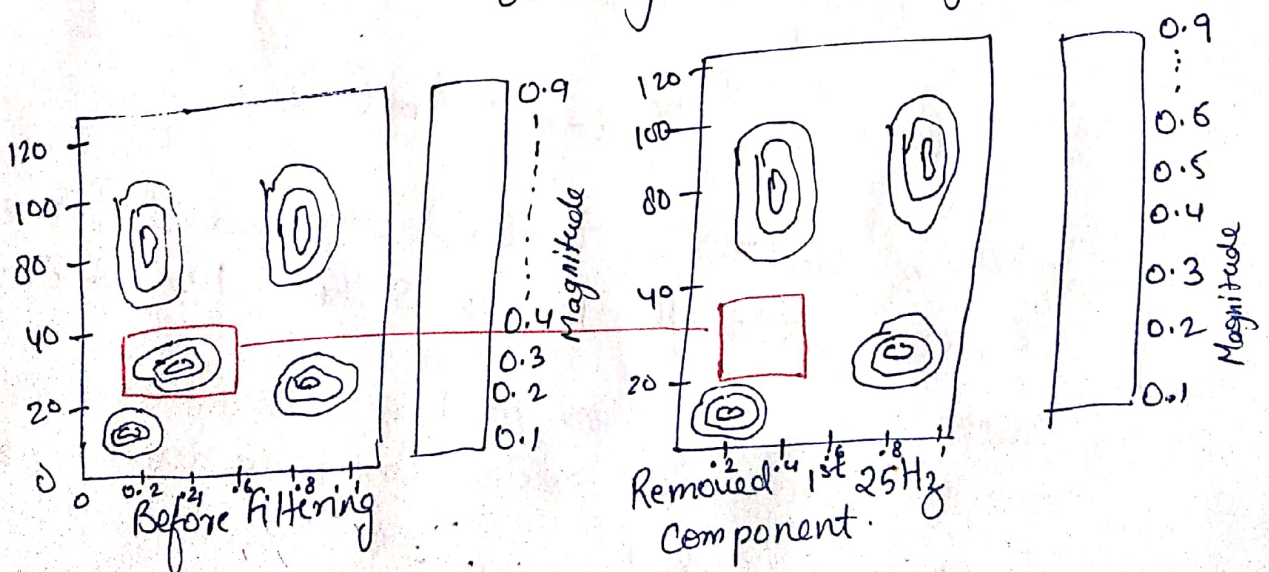 120
100
80
40
20
0
0 0.2 .4 .6 .8 1
Before Filtering
0.9
0.4
0.3
0.2
0.1
Magnitude
120
100
80
40
20
.2 .4 .6 .8 1
Removed 1st 25Hz
Component.
0.9
0.6
0.5
0.4
0.3
0.2
0.1
Magnitude